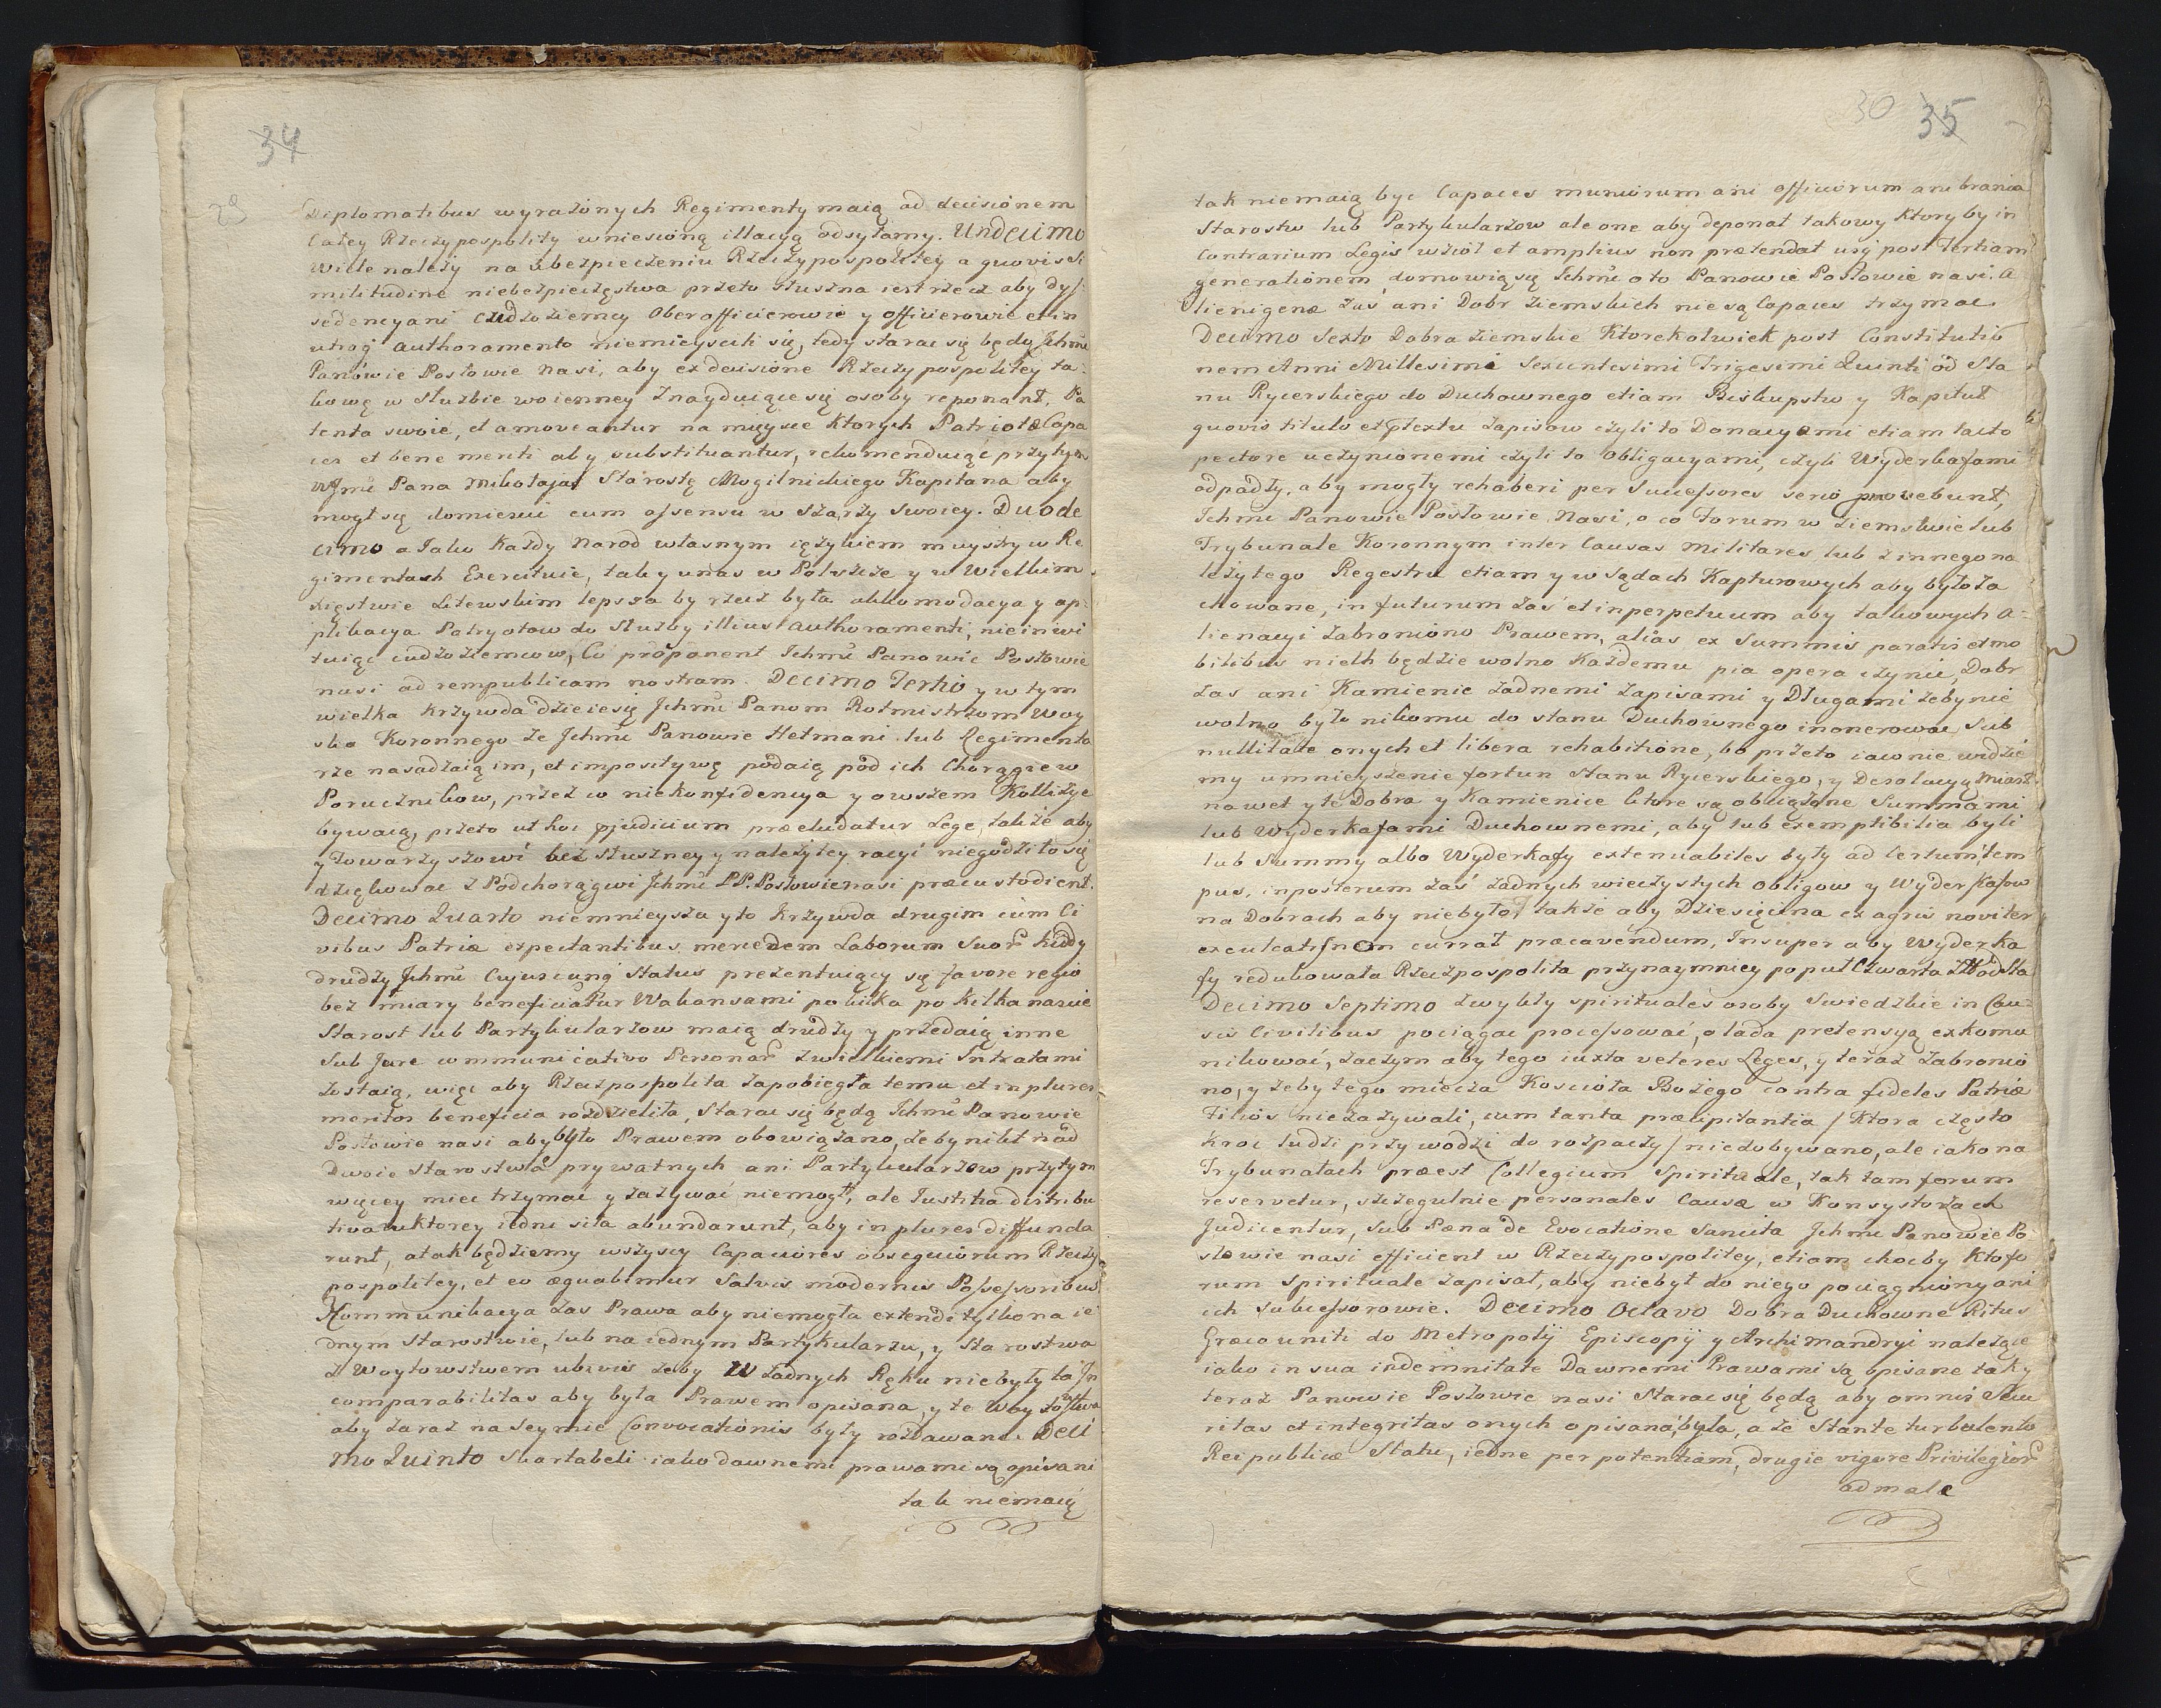 34
29
Diplomatibus wyrażonych Regimenty maią ad decisionem
Całey Rzeczypospolity wniesioną illacyą odsyłamy. Undecimo
Wiele należy na ubezpieczeniu Rzeczypospolitey a quovis si
militudine niebezpieczęstwa przeto słuszna iest rzecz aby dys
sedencyani Cudzoziemcy Oberofficierowie y officierowie et in
utroq authoramento niemieyscili się, tedy starac się będą Jchmć
Panowie Posłowie Nasi, aby ex decisione Rzeczypospolitey ta
kowę w służbie woienney Znayduiącesię osoby reponant, Pa
tenta swoie, et amoveantur na mieysce Ktorych Patriotæ Capa
ces et bene meriti aby substituantur, rekomenduiąc przytym
WJmć Pana Mikołaja Starostę Mogilnickiego Kapitana aby
mogł się domiescić cum assensu w Szarży swoiey. Duode
cimo a Jako Każdy Narod własnym ięzykiem muysztry w Re
gimentach Exercituie, tak y unas w Polszcze y w Wielkim
xięstwie Litewskim lepsza by rzecz była akkomodacya y ap
plikacya Patryotow do służby illius authoramenti, nieinwi
tuiąc cudzoziemcow, Co proponent Jchmć Panowie Posłowie
nasi ad rempublicam nostram. Decimo Tertio y w tym
wielka krzywda dzieiesię Jchmć Panom Rotmistrzom Woy
ska Koronnego że Jchmć Panowie Hetmani lub Regimenta
rze nasadzaią im, et impositywę podaią pod ich Chorągiew
Porucznikow, przez co niekonfidencya y owszem Kollizye
bywaią, przeto ut hoc pjudicium præcludatur Lege, także aby
y Towarzyszowi bez słuszney y należytey racyi niegodziło się
dziękować z Podchorągwi Jchmć PP. Posłowie nasi præcustodient.
Decimo Quarto niemnieysza y to krzywda drugim cum Ci
vibus Patriæ expectantibus mercedem Laborum Suor kiedy
drudzy Jchmć Cujuscunq Status prezentuiący się favore regio
bez miary beneficiatur Wakansami po kilka po kilkanascie
Starost lub Partykularzow maią drudzy y przedaią inne
Sub Jure communicativo Personar zwielkiemi Intratami
zostaią, więc aby Rzeczpospolita zapobiegła temu et in plures
meritos beneficia rozdzieliła, Starac się będą Jchmć Panowie
Posłowie nasi aby było Prawem obowiązano, żeby nikt nad
Dwoie Starostwa prywatnych ani Partykularzow przytym
więcey miec trzymać y zażywać niemogł, ale Iustitia distribu
tiva w ktorey iedni siła abundarunt, aby in plures diffunda
runt, a tak będziemy wszyscy Capaciores obsequiorum Rzeczy
pospolitey, et eo æquabimur Salvis modernis Possessoribus
Kommunikacya zas Prawa aby niemogła extendi tylko na ie
dnym Starostwie, lub na iednym Partykularzu, y Starostwa
z Woytowstwem ubivis żeby W Zadnych Ręku niebyły ta In
comparabilitas aby była Prawem opisana, y te Woytowstwa
aby zaraz na Seymie Convocationis były rozdawane. Deci
mo Quinto Skartabeli iako dawnemi prawami są opisani
tak niemaią
30 35
tak niemaią byc Capaces munuorum ani officiorum ani brania
Starostw lub Partykularzow ale one aby deponat takowy Ktory by in
Contrarium Legis wzioł et amplius non prætendat usq post Tertiam
generationem, domowią się Jchmć oto Panowie Posłowie nasi. A
lienigenæ zas ani Dobr Ziemskich nie są Capaces trzymac
Decimo Sexto Dobra ziemskie Ktorekolwiek post Constitutio
nem Anni Millesimi Sexcentesimi Trigesimi Quinti od Sta
nu Rycerskiego do Duchownego etiam Biskupstw y Kapituł
quovis titulo et ptextu Zapisow czyli to Donacyami etiam tacto
pectore uczynionemi czyli to Obligacyami, czyli Wyderkafami
odpadły, aby mogły rehaberi per Successores serio promovebunt,
Jchmć Panowie Posłowie Nasi, o co Forum w Ziemstwie lub
Trybunale Koronnym inter Causas Militares lub z innego na
leżytego Regestru etiam y w Sądach Kapturowych aby było za
chowane, in futurum zas et inperpetuum aby takowych a
lienacyi zabroniono Prawem, alias ex Summis paratis et mo
bilibus niech będzie wolno Każdemu pia opera czynić, Dobr
zas ani Kamienic zadnemi zapisami y Długami żeby nie
wolno było nikomu do stanu Duchownego inonerować Sub
nullitate onych et libera rehabitione, bo przeto iawnie widzie
my umnieyszenie fortun Stanu Rycerskiego, y Desolacyą Miast
nawet y te Dobra y Kamienice ktore są obciążone Summami
lub Wyderkafami Duchownemi, aby lub exemptibilia byli
lub Summy albo Wyderkafy extenuabiles były ad certum tem
pus, inposterum zaś żadnych wieczystych obligow y Wyderkafow
na Dobrach aby niebyło, także aby Dziesięcina ex agris noviter
exculcatis non currat præcavendum, Insuper aby Wyderka
fy redukowała Rzeczpospolita przynaymniey po puł Czwarta
Decimo Septimo zwykły spirituales osoby Swiedzkie in Cau
sis Civilibus pociągac processować, o lada pretensyą exkomu
nikować, zaczym aby tego iuxta veteres Leges, y teraz zabronio
no, y żeby tego miecza Kościoła Bożego contra fideles Patriæ
Filios niezażywali, cum tanta præcipitantia / Ktora często
kroc ludzi przywodzi do rozpaczy / niedobywano, ale iako na
Trybunałach præest Collegium Spirituale, tak tam forum
reservetur, szczegulnie personales Causæ w Konsystorzach
Judicentur, Sub Pæna de Evocatione Sancita Jchmć Panowie Po
słowie nasi efficient w Rzeczypospolitey, etiam choćby Kto fo
rum Spirituale zapisał, aby niebył do niego pociągniony ani
ich Sukcessorowie. Decimo Octavo Dobra Duchowne Ritus
Græco uniti do Metropoly Episcopÿ y Archimandryi należące
iako in sua indemnitate Dawnemi Prawami są opisane tak y
teraz Panowie Posłowie nasi Starac się będą aby omnis Secu
ritas et integritas onych opisana była, a że Stante turbulento
Reipublicæ Statu, iedne per potentiam, drugie vigore Privilegior
ad male